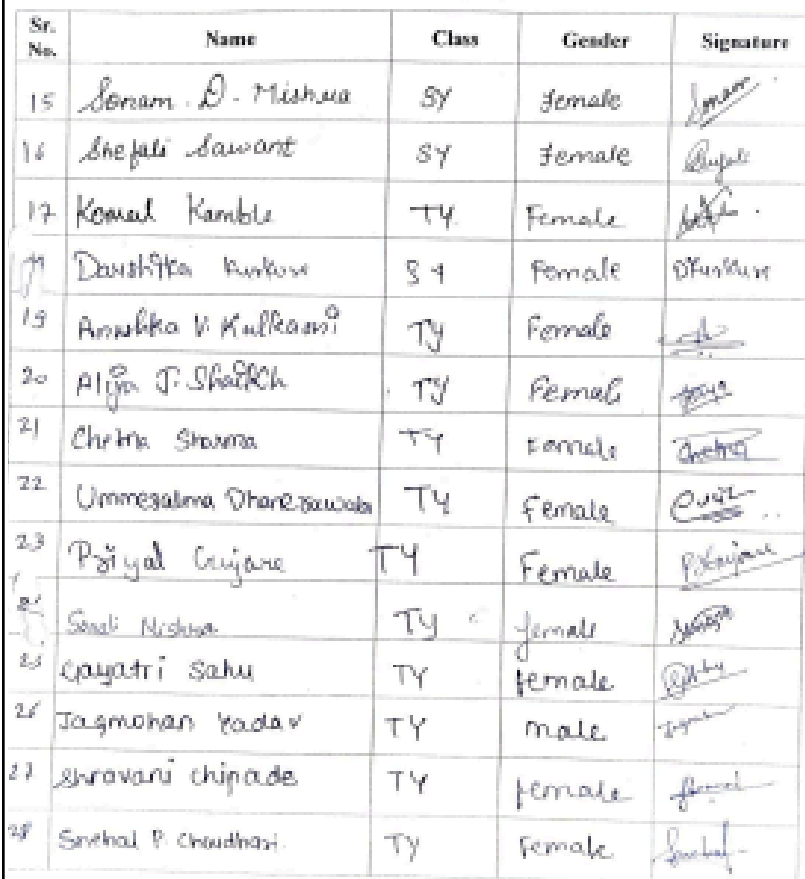 Sr. No. Name Class Gender Signature
15 Sonam D. Mishra SY Female Sonam
16 Shefali Sawant SY Female
17 Komal Kamble TY Female
Daushtka Kurkure SY Female DKurkure
19 Anushka V. Kulkarni TY Female
20 Aliya J. Shaikh TY Female
21 Chetna Sharma TY Female Chetna
22 Ummesalma TY Female
23 Priyal Gujare TY Female P.Gujare
Mishra TY female
25 Gayatri Sahu TY female
26 Jagmohan Yadav TY male
27 shravani chipade TY female
28 Snehal P. Choudhari TY Female Snehal